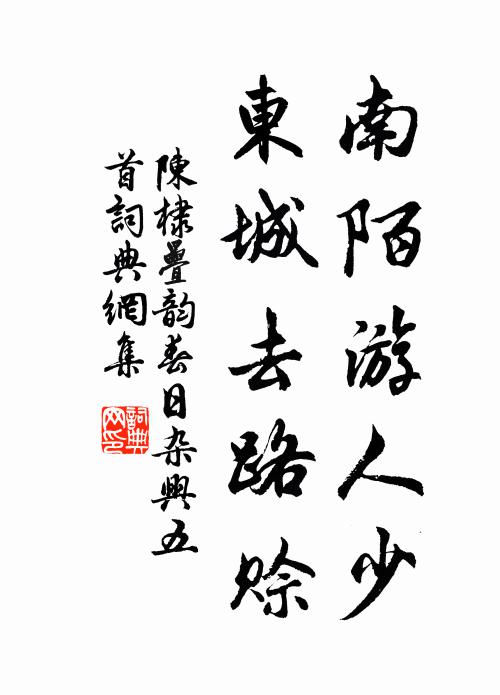 南陌游人少
東城去路賒
陳棣疊韵春日杂興五
首詞典網集
詞典
网印